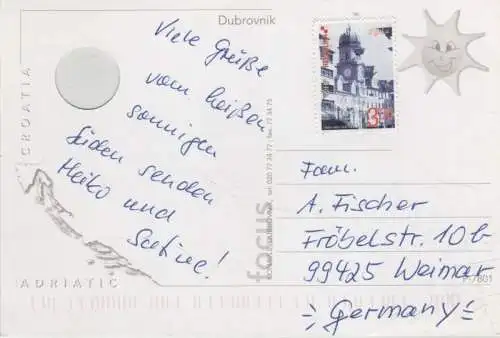 Dubrovnik
Viele Grüße
vom heißen
sonnigen
Süden senden
Heiko und
CROATIA
ADRIATIC
focus
Fam.
A. Fischer
Fröbelstr. 10b
99425 Weimar
Germany